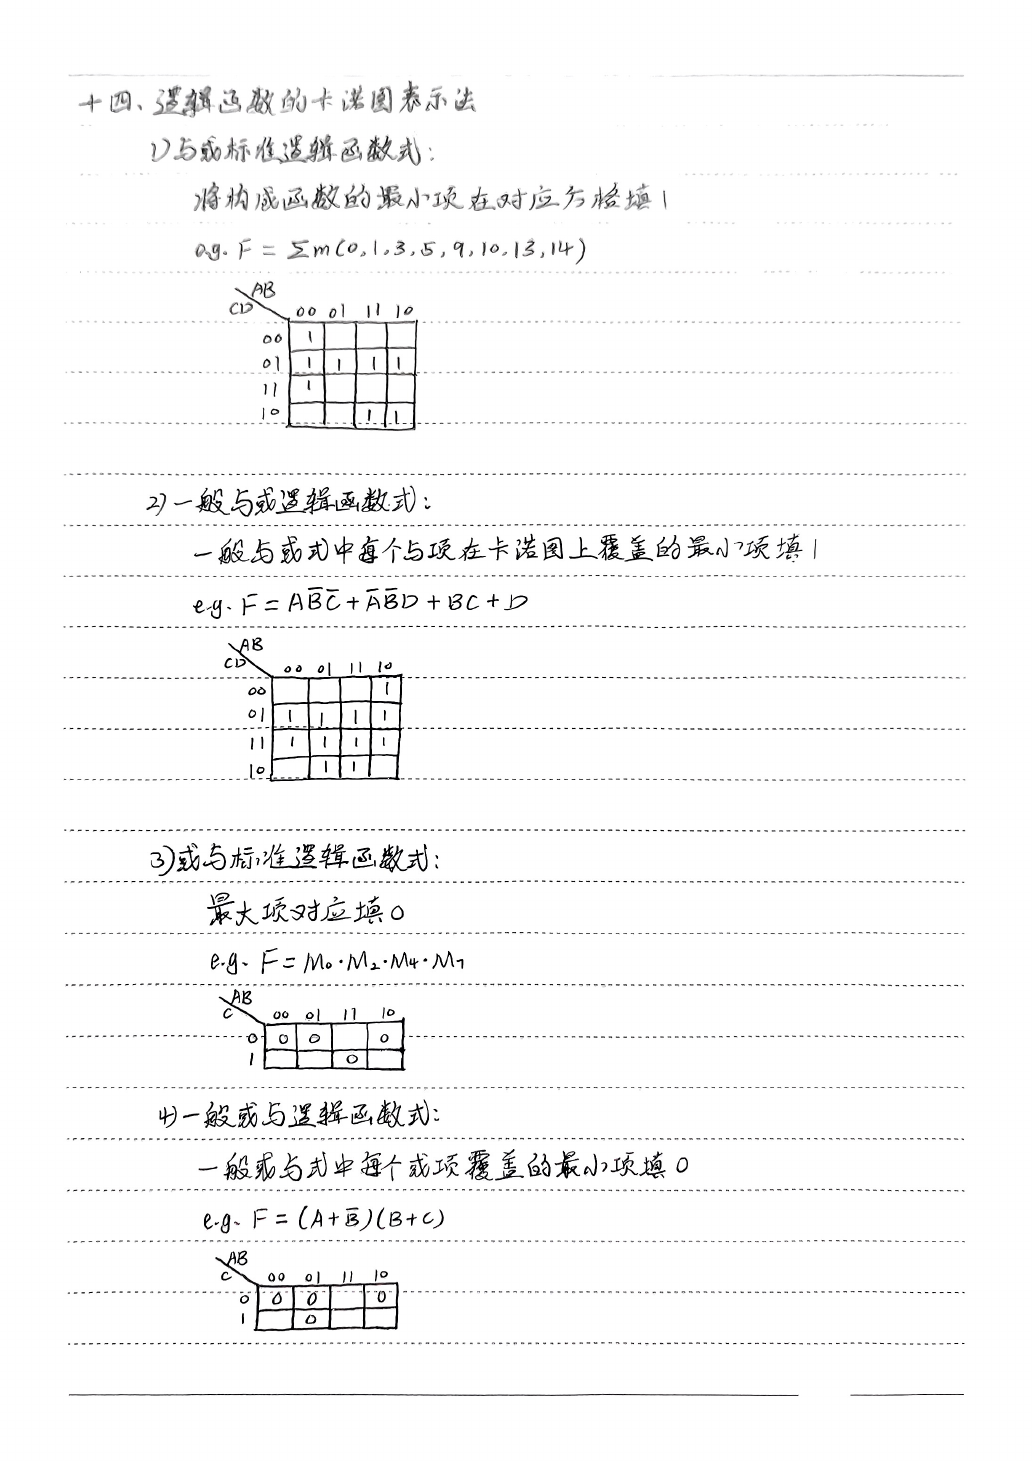 十四、逻辑函数的卡诺图表示法
1)与或标准逻辑函数式:
将构成函数的最小项在对应方格填1
e.g. F = Σm(0,1,3,5,9,10,13,14)
AB
CD
00 01 11 10
00 1
01 1 1 1 1
11 1
10 1 1
2)一般与或逻辑函数式:
一般与或式中每个与项在卡诺图上覆盖的最小项填1
e.g. F = AB̅C̅ + A̅B̅D + BC + D
AB
CD
00 01 11 10
00 1
01 1 1 1 1
11 1 1 1 1
10 1 1
3)或与标准逻辑函数式:
最大项对应填0
e.g. F = M₀·M₂·M₄·M₇
AB
C
00 01 11 10
0 0 0 0
1 0
4)一般或与逻辑函数式:
一般或与式中每个或项覆盖的最小项填0
e.g. F = (A+B̅)(B+C)
AB
C
00 01 11 10
0 0 0 0
1 0